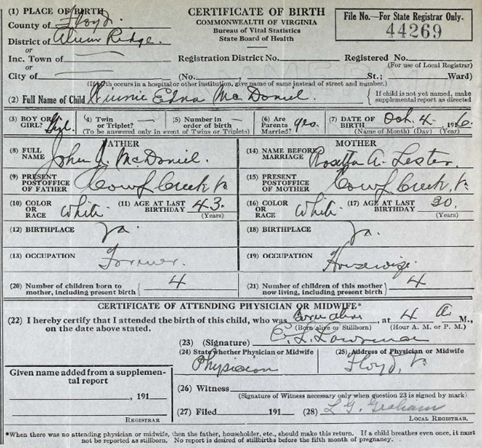 (1) PLACE OF BIRTH
County of Floyd.
District of Alum Ridge.
or
Inc. Town of
or
City of
CERTIFICATE OF BIRTH
COMMONWEALTH OF VIRGINIA
Bureau of Vital Statistics
State Board of Health
File No.—For State Registrar Only.
44269
Registration District No. Registered No.
(For use of Local Registrar)
(No. St.; Ward)
(If birth occurs in a hospital or other institution, give name of same instead of street and number.)
(2) Full Name of Child Edna McDaniel.
If child is not yet named, make supplemental report as directed
(3) BOY OR GIRL? Girl. (4) Twin or Triplet? (5) Number in order of birth (6) Are Parents Married? yes. (7) DATE OF BIRTH Oct. 4 1916.
(To be answered only in event of Twins or Triplets) (Name of Month) (Day) (Year)
FATHER MOTHER
(8) FULL NAME John McDaniel. (14) NAME BEFORE MARRIAGE Rosetta A. Lester
(9) PRESENT POSTOFFICE OF FATHER Creek, Va (15) PRESENT POSTOFFICE OF MOTHER Creek, Va
(10) COLOR OR RACE White (11) AGE AT LAST BIRTHDAY 43. (Years) (16) COLOR OR RACE White (17) AGE AT LAST BIRTHDAY 30. (Years)
(12) BIRTHPLACE Va. (18) BIRTHPLACE Va.
(13) OCCUPATION Farmer. (19) OCCUPATION Housewife.
(20) Number of children born to mother, including present birth 4 (21) Number of children of this mother now living, including present birth 4
CERTIFICATE OF ATTENDING PHYSICIAN OR MIDWIFE*
(22) I hereby certify that I attended the birth of this child, who was Born alive at 4 A M.
on the date above stated. (Born alive or Stillborn) (Hour A. M. or P. M.)
(23) (Signature) C. L. Lawrence
(24) State whether Physician or Midwife (25) Address of Physician or Midwife
Physician Floyd, Va
Given name added from a supplemental report
, 191
REGISTRAR
(26) Witness
(Signature of Witness necessary only when question 23 is signed by mark)
(27) Filed , 191 (28) L. G. Graham
LOCAL REGISTRAR.
*When there was no attending physician or midwife, then the father, householder, etc., should make this return. If a child breathes even once, it must
not be reported as stillborn. No report is desired of stillbirths before the fifth month of pregnancy.